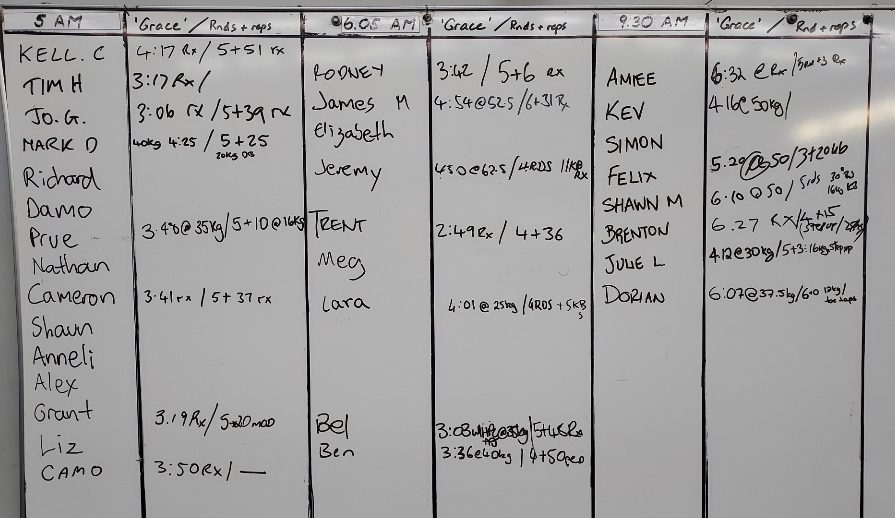 5 AM 'Grace' / Rnds + reps
KELL. C 4:17 Rx / 5+51 rx
TIM H 3:17 Rx /
JO. G. 3:06 rx / 5+39 rx
MARK D 40kg 4:25 / 5+25
20kg DB
Richard
Damo
Prue 3.40@35kg/5+10@16kg
Nathan
Cameron 3.41 rx / 5+37 rx
Shaun
Anneli
Alex
Grant 3.19 Rx/ 5+20 mod
Liz
CAMO 3:50 Rx/ —
6.05 AM 'Grace' / Rnds + reps
RODNEY 3:42 / 5+6 Rx
James M 4:54@52.5/6+31 Rx
Elizabeth
Jeremy 450@62.5/4RDS 11KB
RX
TRENT 2:49 Rx / 4+36
Meg
Lara 4:01 @ 25kg /4RDS + 5KB
s
Bel 3:03 @35kg/5+48 Rx
Ben 3:36@40kg / 4+50
9.30 AM 'Grace' / Rnd + reps
AMIEE 6:32 @ Rx /5Rd+3 Rx
KEV 416@50kg/
SIMON
FELIX 5.20@50/3+20
SHAWN M 6.10 @ 50 / 5rds
BRENTON 6.27 RX/4+15
JULIE L 412@30kg/5+3:16kg step up
DORIAN 6:07@37.5kg/6+0 12kg/